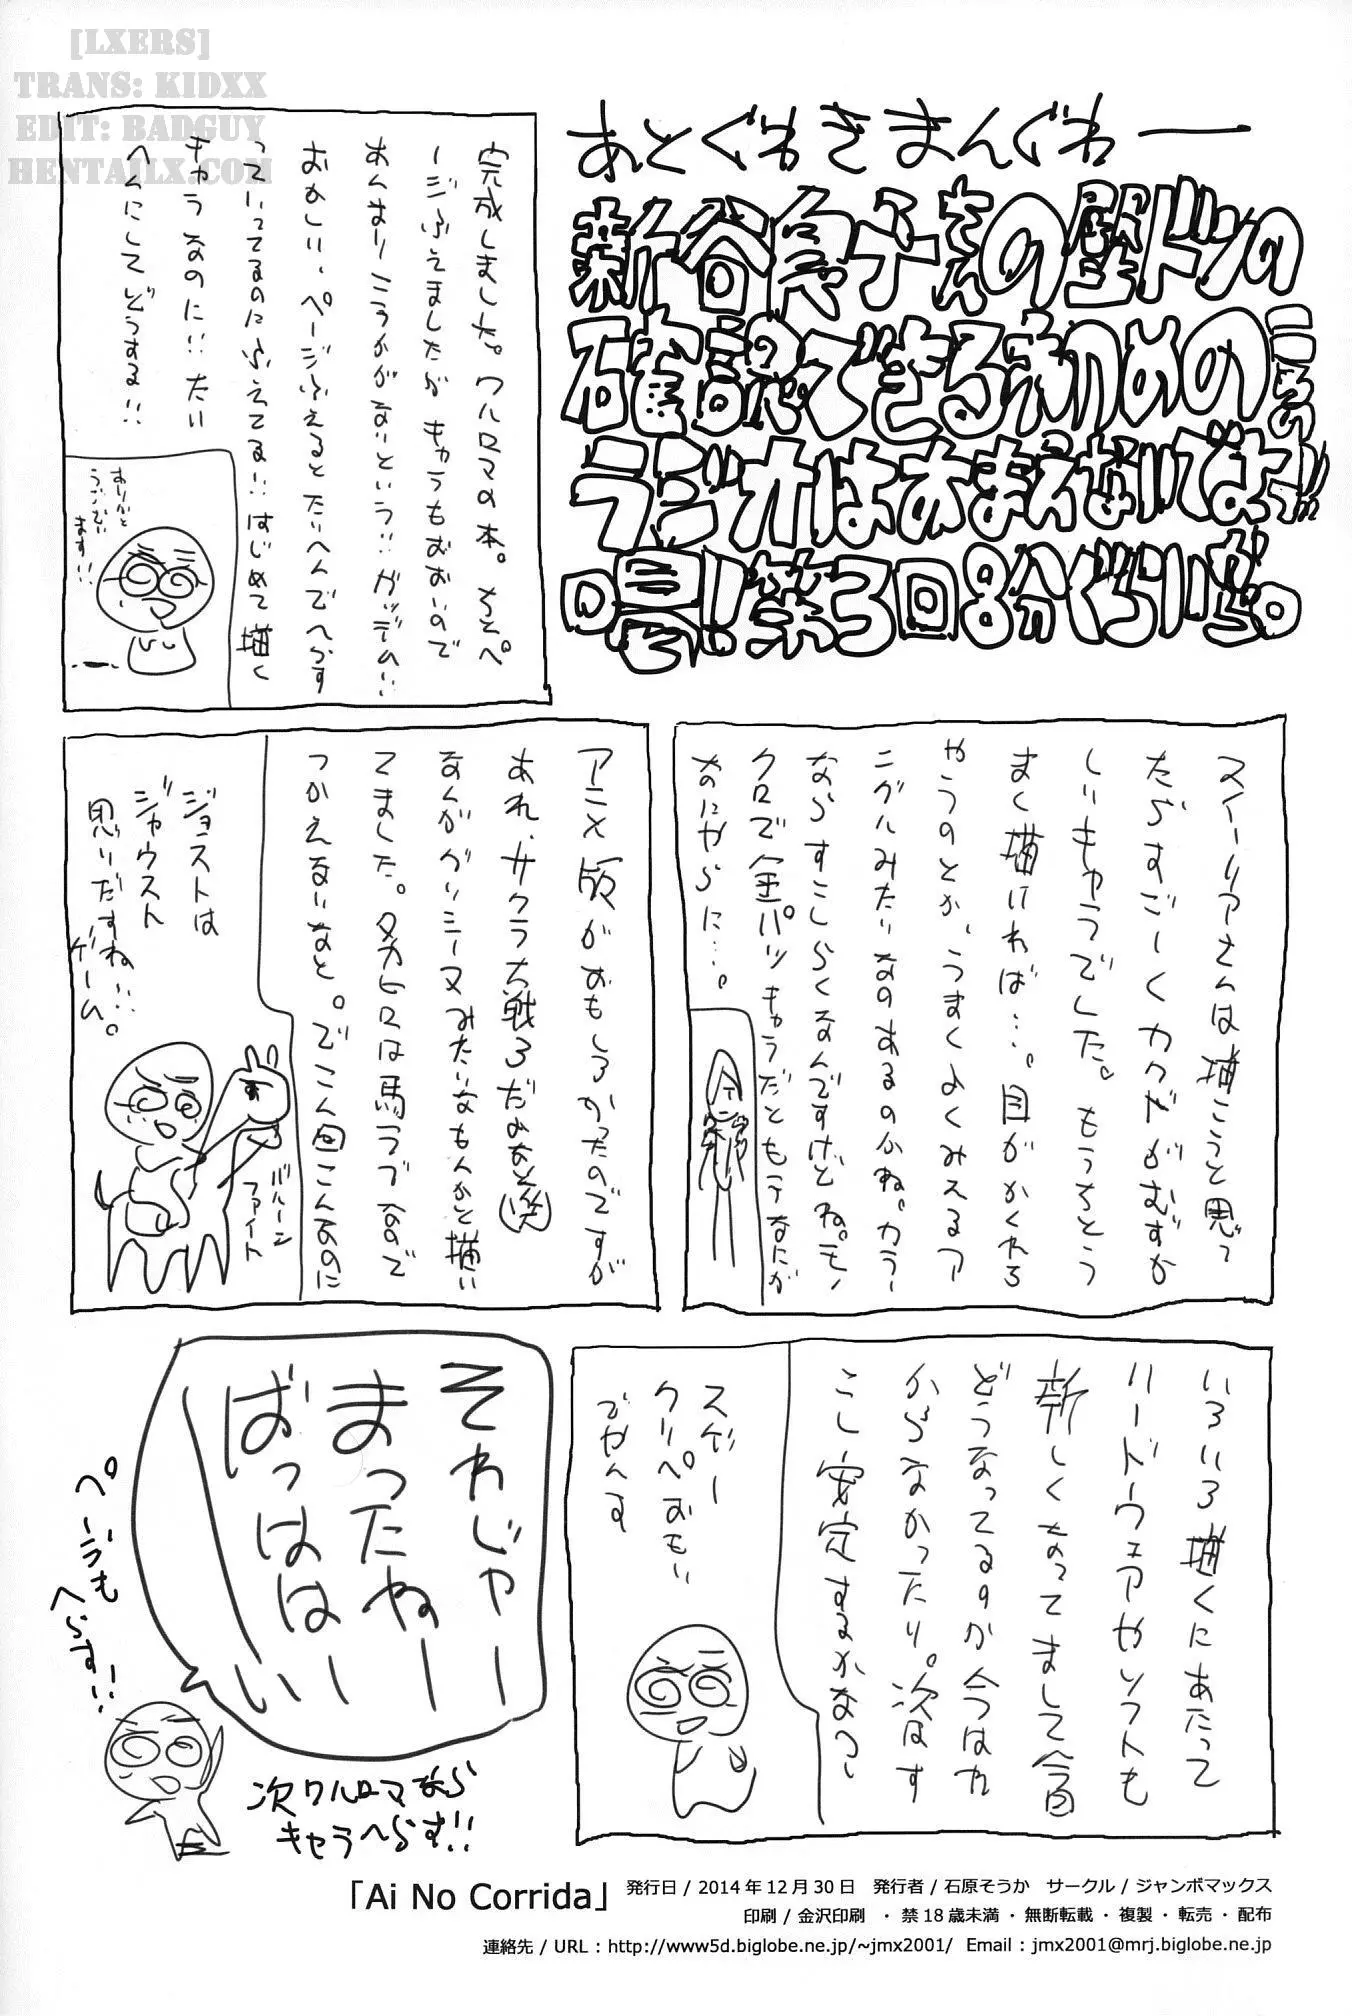 [LXERS]
TRANS: KIDXX
EDIT: BADGUY
HENTAILX.COM
あとぐわきまんぐわー
新谷良子さんの壁ドンの
確認できる初めの
ラジオはおまえないでよ
第3回8分ぐらいから。
完成しました。ワルロマの本。ちとペ
ージふえましたが キャラもおおいので
あんまりこうかがないという!! ガッデム!!
おかしい、ページふえるとたいへんでへらす
っていってるのにふえてる!! はじめて描く
キャラなのに!! たい
へんにしてどうする!!
ありがと
うござい
ます!!
スイーリアさんは描こうと思って
たらすごーくカクがむずか
しいキャラでした。もうちとう
まく描ければ…。目がかくれる
やうのとか、うまくよくみえるア
ングルみたいなのあるのかね。カラー
ならすこしらくなんですけどね。モノ
クロで金パツキャラだともうなにが
なにやらに…。
アニメ版がおもしろかったのですが
あれ、サクラ大戦3だよなと(笑)
なんかグリシーヌみたいなもんかと描い
てました。タカヒロは馬ラブなので
つかえないなと。でこん回こんなのに
ジョストは
ジャウスト
思いだすね…
ゲーム。
バルーン
ファイト
いろいろ描くにあたって
ハードウェアやソフトも
新しくなってまして今回
どうなってるすか今はわ
からなかったり。次はす
こし安定するかなっ
スゲー
クリペおもい
でやんす
それじゃー
まったねー
ばっはは
いー
ページも
へらす!!
次ワルロマなら
キャラへらす!!
「Ai No Corrida」 発行日 / 2014 年 12 月 30 日　発行者 / 石原そうか　サークル / ジャンボマックス
印刷 / 金沢印刷　・ 禁 18 歳未満 ・ 無断転載 ・ 複製 ・ 転売 ・ 配布
連絡先 / URL : http://www5d.biglobe.ne.jp/~jmx2001/ Email : jmx2001@mrj.biglobe.ne.jp